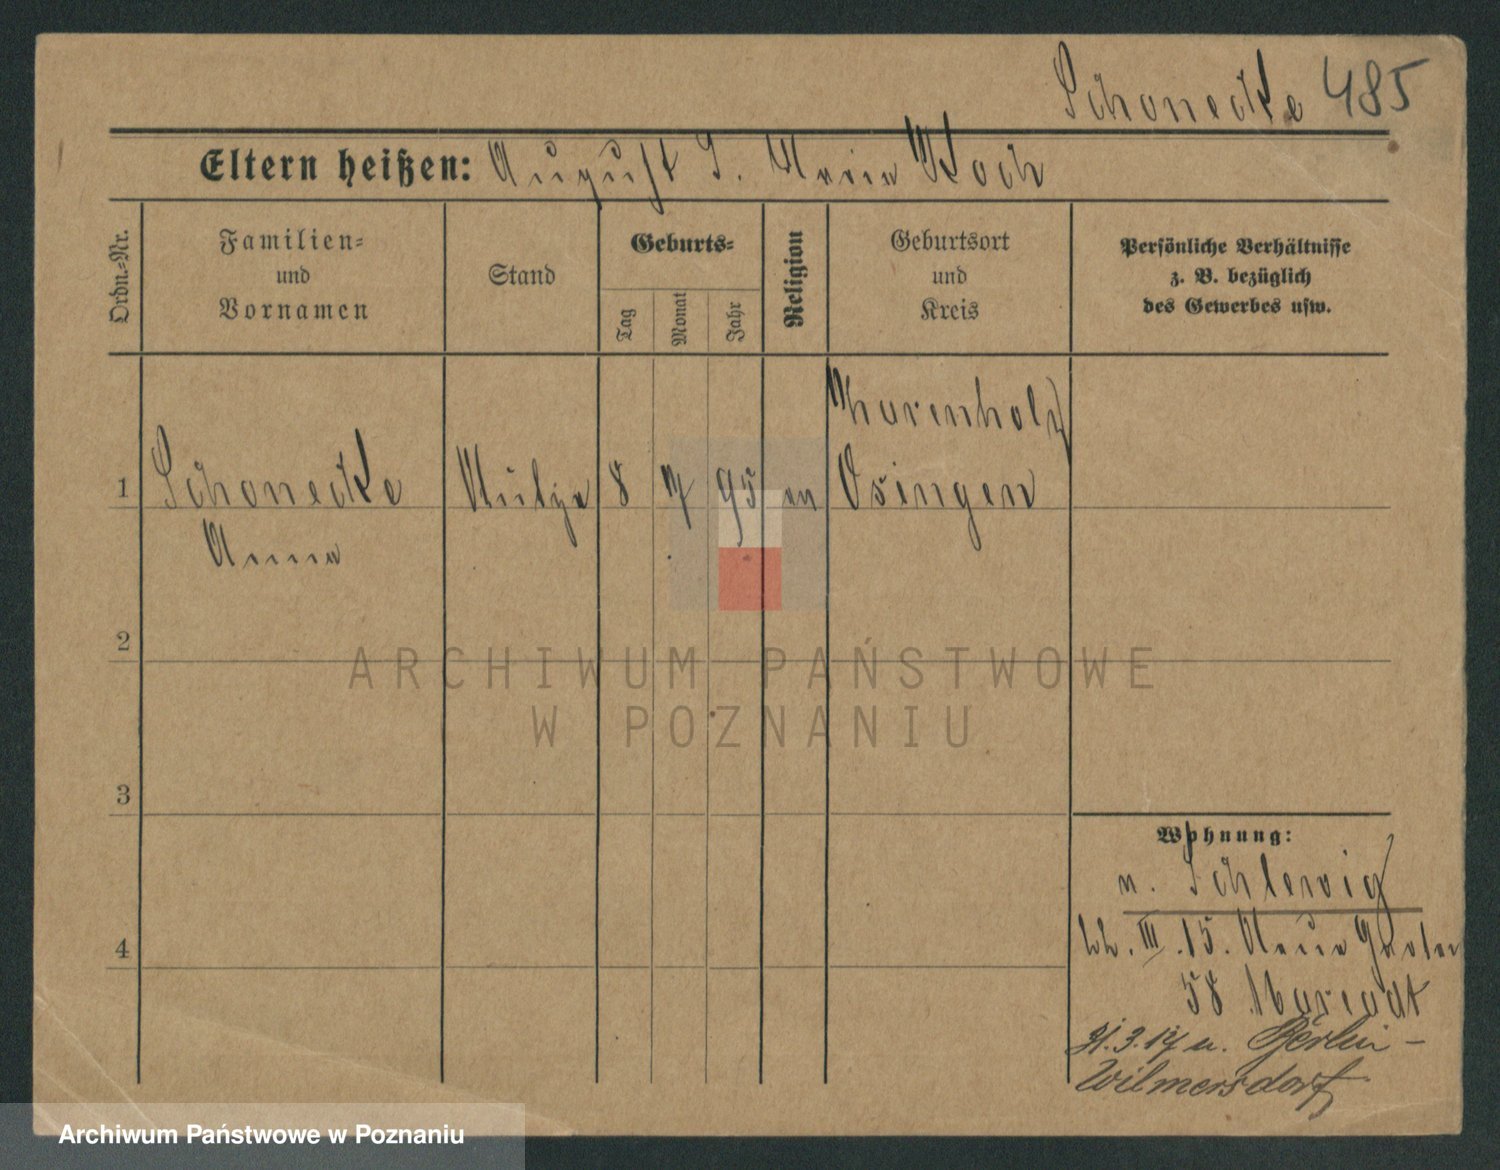 Schonecke 485
Eltern heißen: August S. Maria Koch
Ordn.-Nr.
Familien-
und
Vornamen
Stand
Geburts-
Tag
Monat
Jahr
Religion
Geburtsort
und
Kreis
Persönliche Verhältnisse
z. B. bezüglich
des Gewerbes usw.
1 Schonecke 8 7 95
Anna
2
3
4
Wohnung:
n. Schleswig
III. 15. Neue Garten
58
31.3.17 n. Berlin-
Wilmersdorf
ARCHIWUM PAŃSTWOWE
W POZNANIU
Archiwum Państwowe w Poznaniu